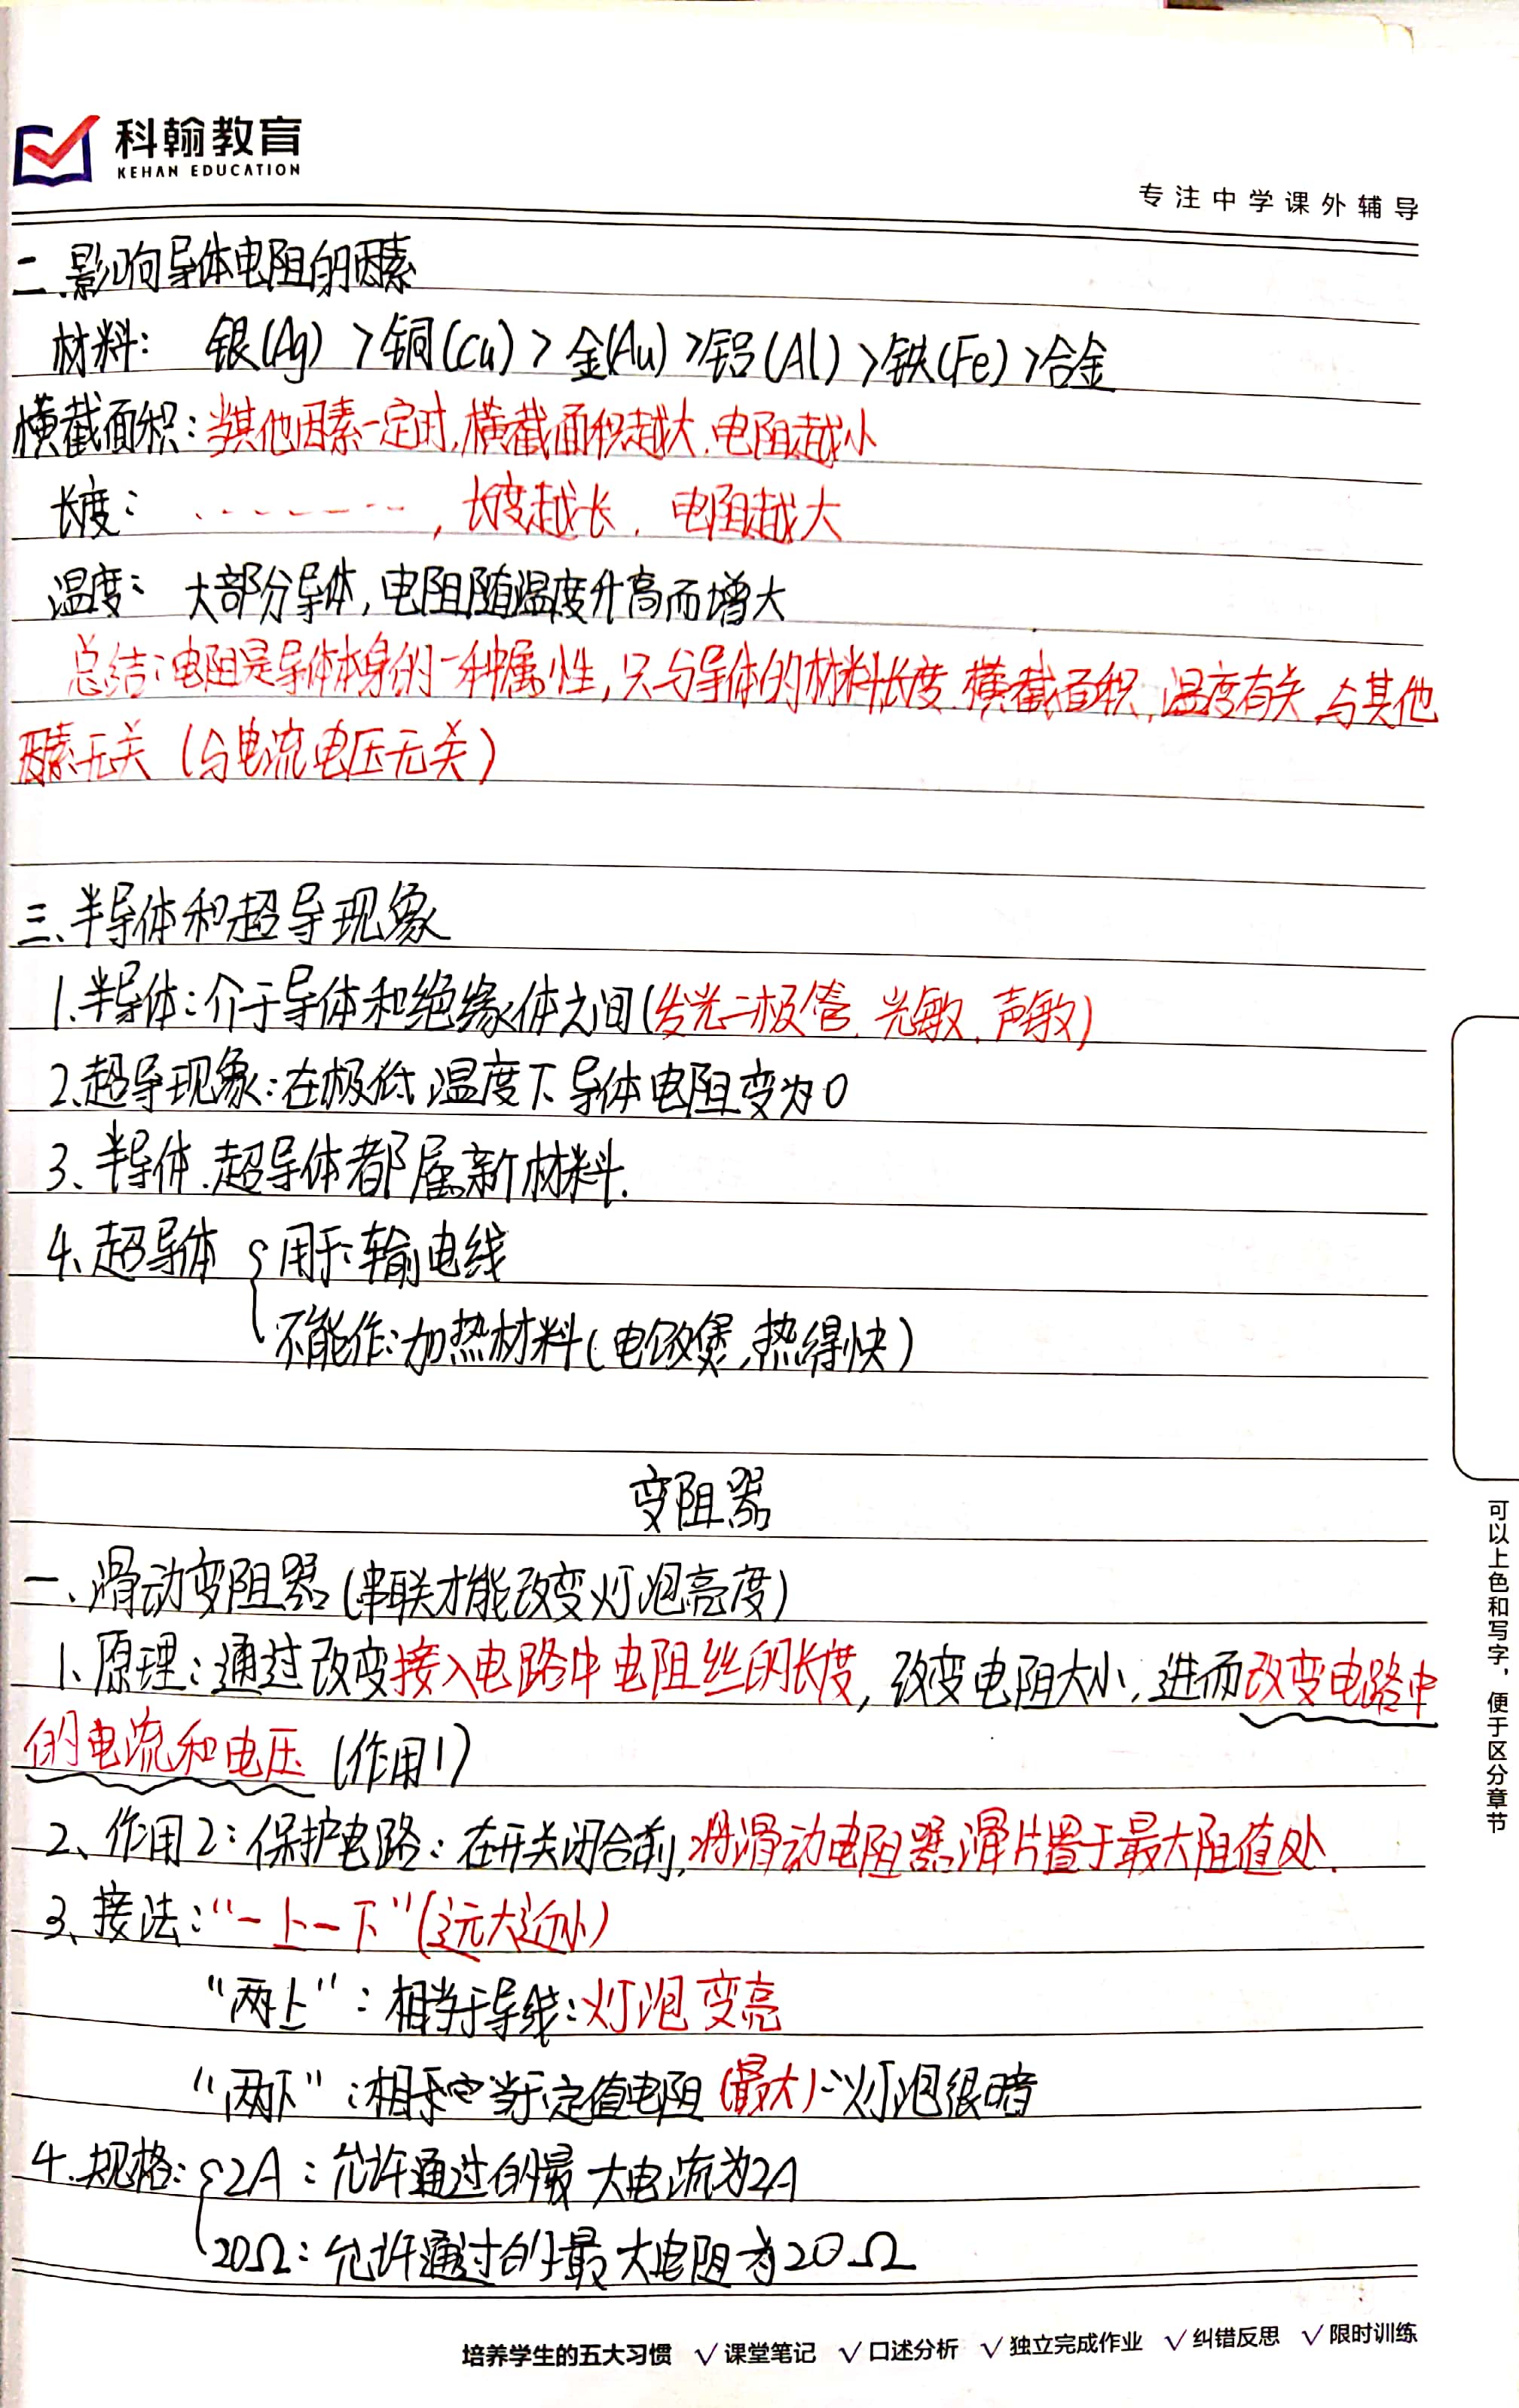 科翰教育
KEHAN EDUCATION
专注中学课外辅导
二.影响导体电阻的因素
材料: 银(Ag) >铜(Cu) > 金(Au) >铝(Al) >铁(Fe) >合金
横截面积:当其他因素一定时,横截面积越大.电阻越小
长度: - - - - - - - , 长度越长. 电阻越大
温度: 大部分导体,电阻随温度升高而增大
总结:电阻是导体本身的一种属性,只与导体的材料长度.横截面积,温度有关 与其他
因素无关 (与电流电压无关)
三、半导体和超导现象
1.半导体:介于导体和绝缘体之间(发光二极管.光敏.声敏)
2.超导现象:在极低温度下导体电阻变为0
3、半导体.超导体都属新材料.
4、超导体 { 用于:输电线
不能作:加热材料(电饭煲,热得快)
变阻器
一、滑动变阻器(串联才能改变灯泡亮度)
1、原理:通过改变接入电路中电阻丝的长度,改变电阻大小,进而改变电路中
的电流和电压 (作用1)
2、作用2:保护电路:在开关闭合前,将滑动电阻器滑片置于最大阻值处.
3、接法:“一上一下”(远大近小)
“两上”:相当于导线:灯泡变亮
“两下”:相当于定值电阻(最大):灯泡很暗
4.规格:{2A:允许通过的最大电流为2A
20Ω:允许通过的最大电阻为20Ω
可以上色和写字,便于区分章节
培养学生的五大习惯 √课堂笔记 √口述分析 √独立完成作业 √纠错反思 √限时训练